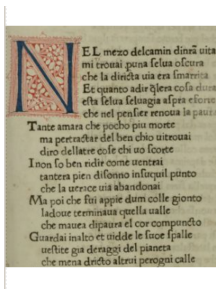 NEL mezo delcamin dinrã uita
mi trouai puna selua oscura
che la diricta uia era smarrita
Et quanto adir q̃lera cosa dura
esta selua seluagia aspra e forte
che nel pensier renoua la paura
Tante amara che pocho piu morte
ma pertractar del ben chio uitrouai
diro dellatre cose chi uo scorte
I non so ben ridir come uentrai
tantera pien disonno insuquil punto
che la uerace uia abandonai
Ma poi che fui appie dum colle gionto
ladoue terminaua quella ualle
che mauea dipaura el cor compuncto
Guardai inalto et uidde le suoe spalle
uestite gia deraggi del pianeta
che mena dricto altrui perogni calle